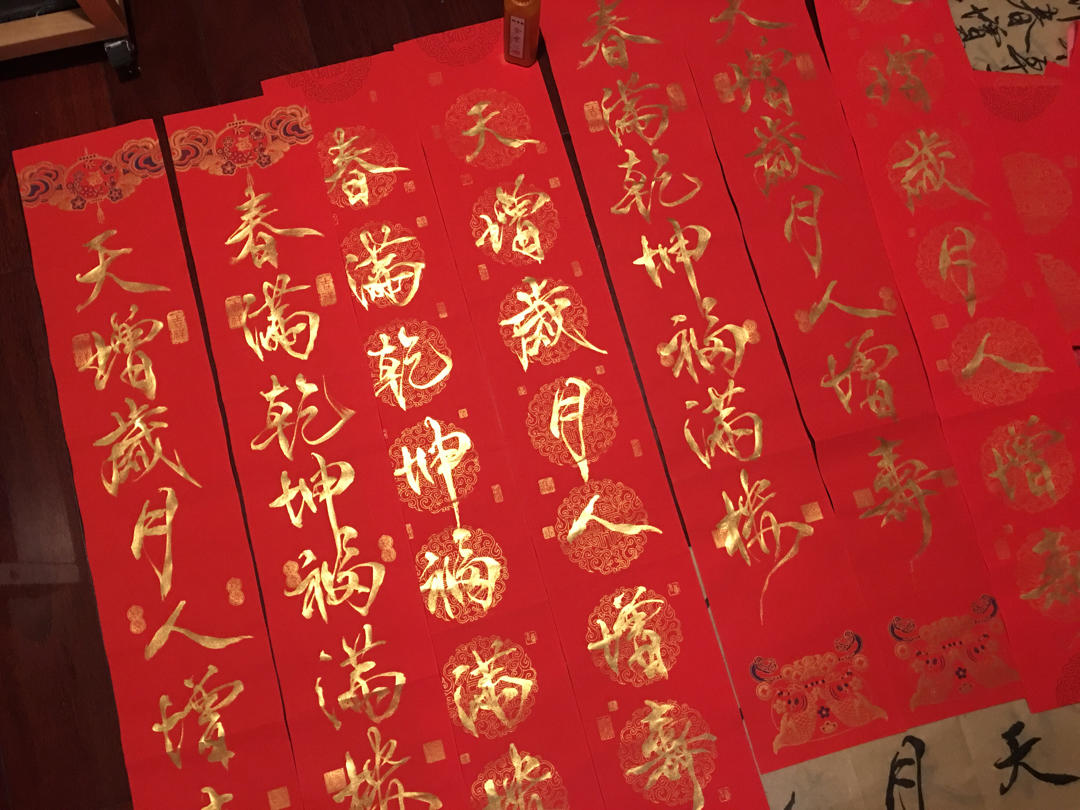 春
增歲月人增壽
天增歲月人增壽
春滿乾坤福滿樓
天增歲月人增壽
春滿乾坤福滿樓
春滿乾坤福滿樓
天增歲月人增
天
月